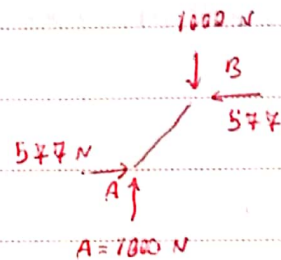 1000 N
B
577
577 N
A
A = 1000 N